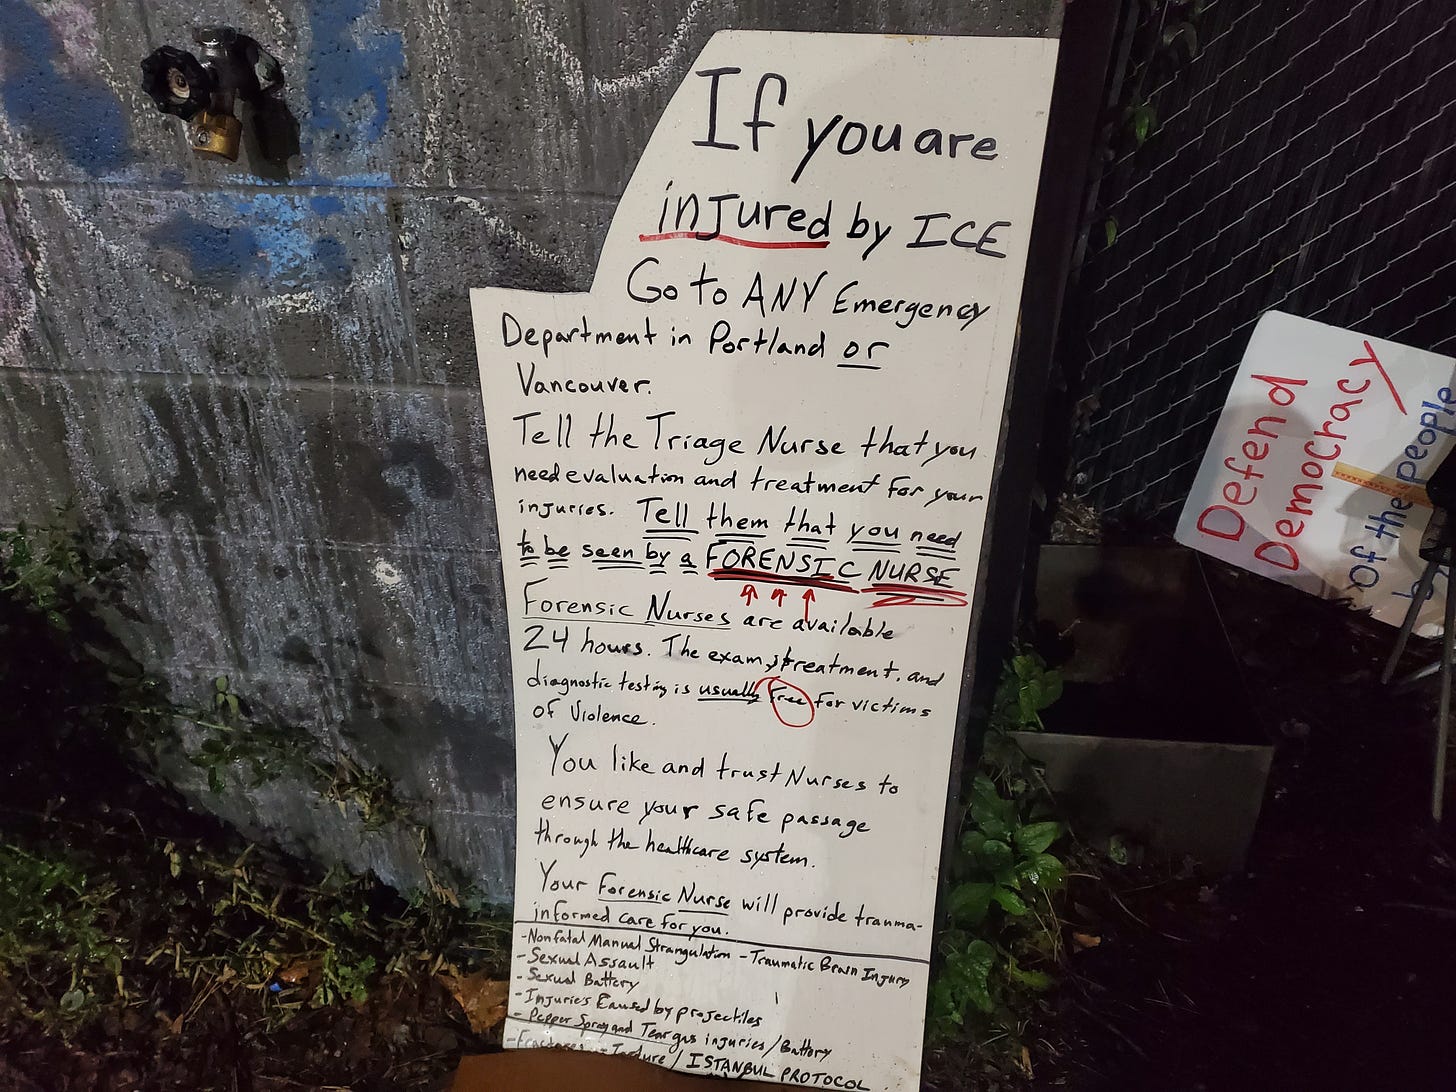 If you are
injured by ICE
Go to ANY Emergency
Department in Portland or
Vancouver.
Tell the Triage Nurse that you
need evaluation and treatment for your
injuries. Tell them that you need
to be seen by a FORENSIC NURSE
Forensic Nurses are available
24 hours. The exam, treatment, and
diagnostic testing is usually free for victims
of Violence.
You like and trust Nurses to
ensure your safe passage
through the healthcare system.
Your Forensic Nurse will provide trauma-
informed care for you.
- Nonfatal Manual Strangulation - Traumatic Brain Injury
- Sexual Assault
- Sexual Battery
- Injuries Caused by projectiles
- Pepper Spray and Tear gas injuries / Battery
- Fractures - Torture / ISTANBUL PROTOCOL
Defend
Democracy
of the people